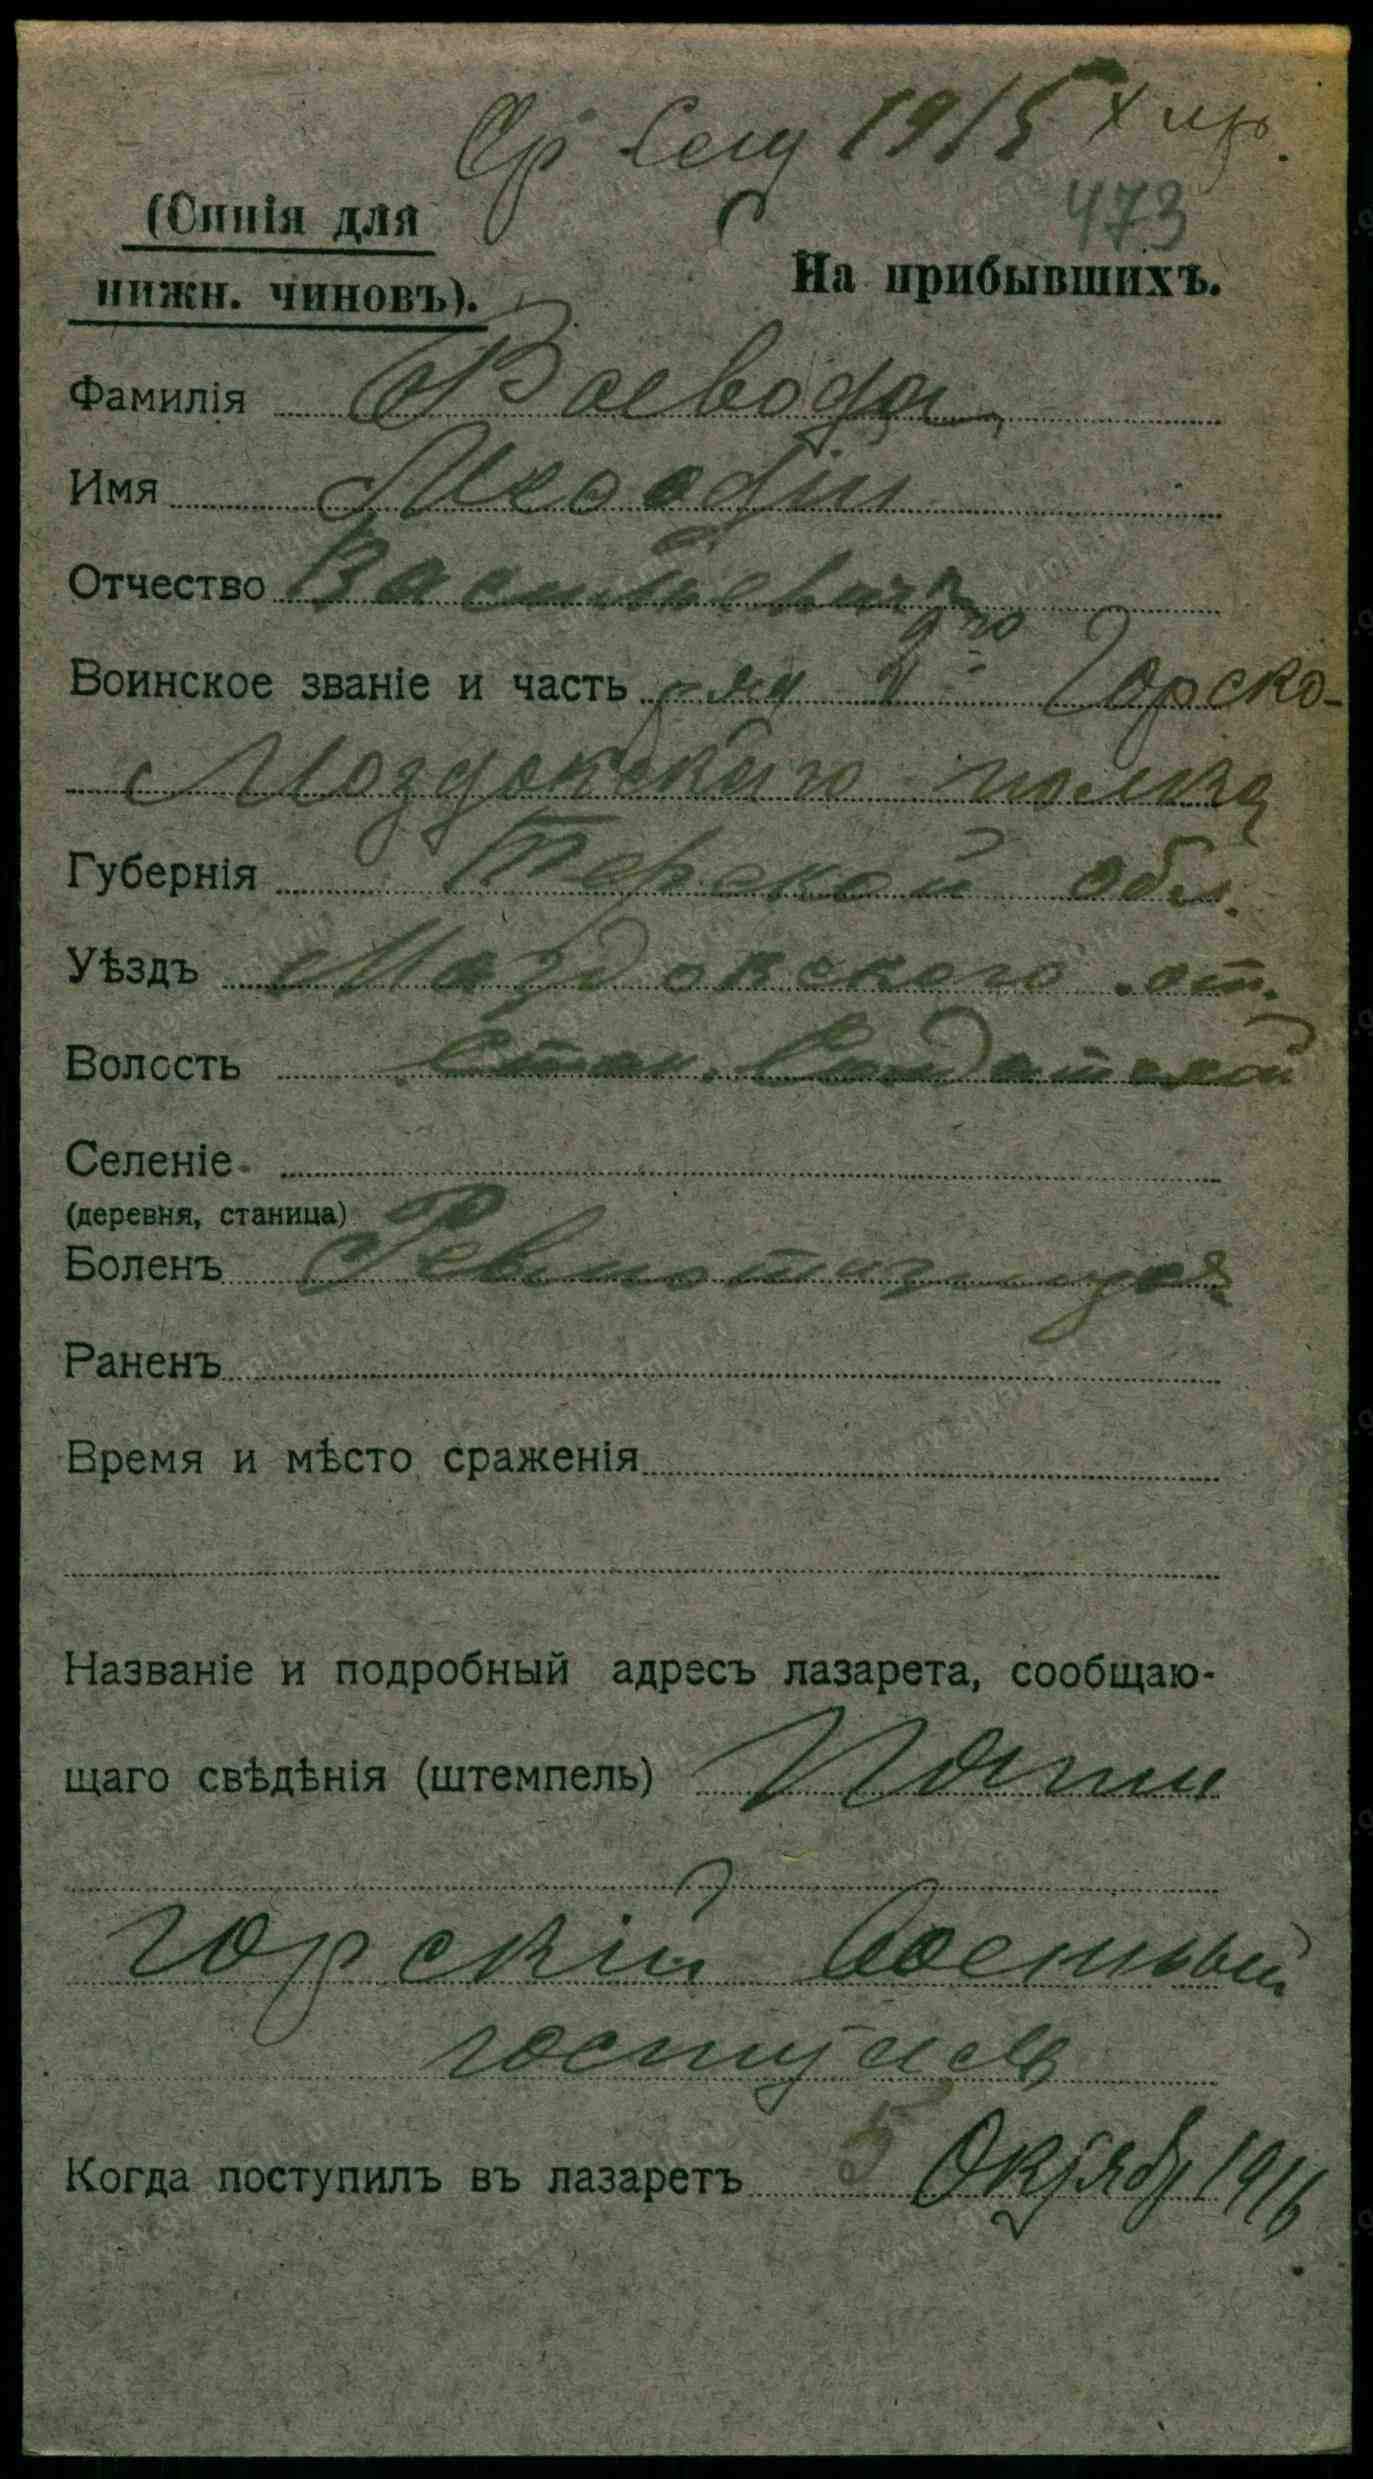 Ср Служ 1915 X
473
(Синія для
нижн. чиновъ).
На прибывшихъ.
Фамилія Воевода
Имя Меѳодій
Отчество Васильевичъ
Воинское званіе и часть ряд 2го Горско-
Моздокскаго полка
Губернія Терской обл.
Уѣздъ Моздокского от.
Волость Стан. Солдатской
Селеніе
(деревня, станица)
Боленъ
Раненъ
Время и мѣсто сраженія
Названіе и подробный адресъ лазарета, сообщаю-
щаго свѣдѣнія (штемпель) Пяти
горскій Военный
госпиталь
Когда поступилъ въ лазаретъ 5 Октябр 1916